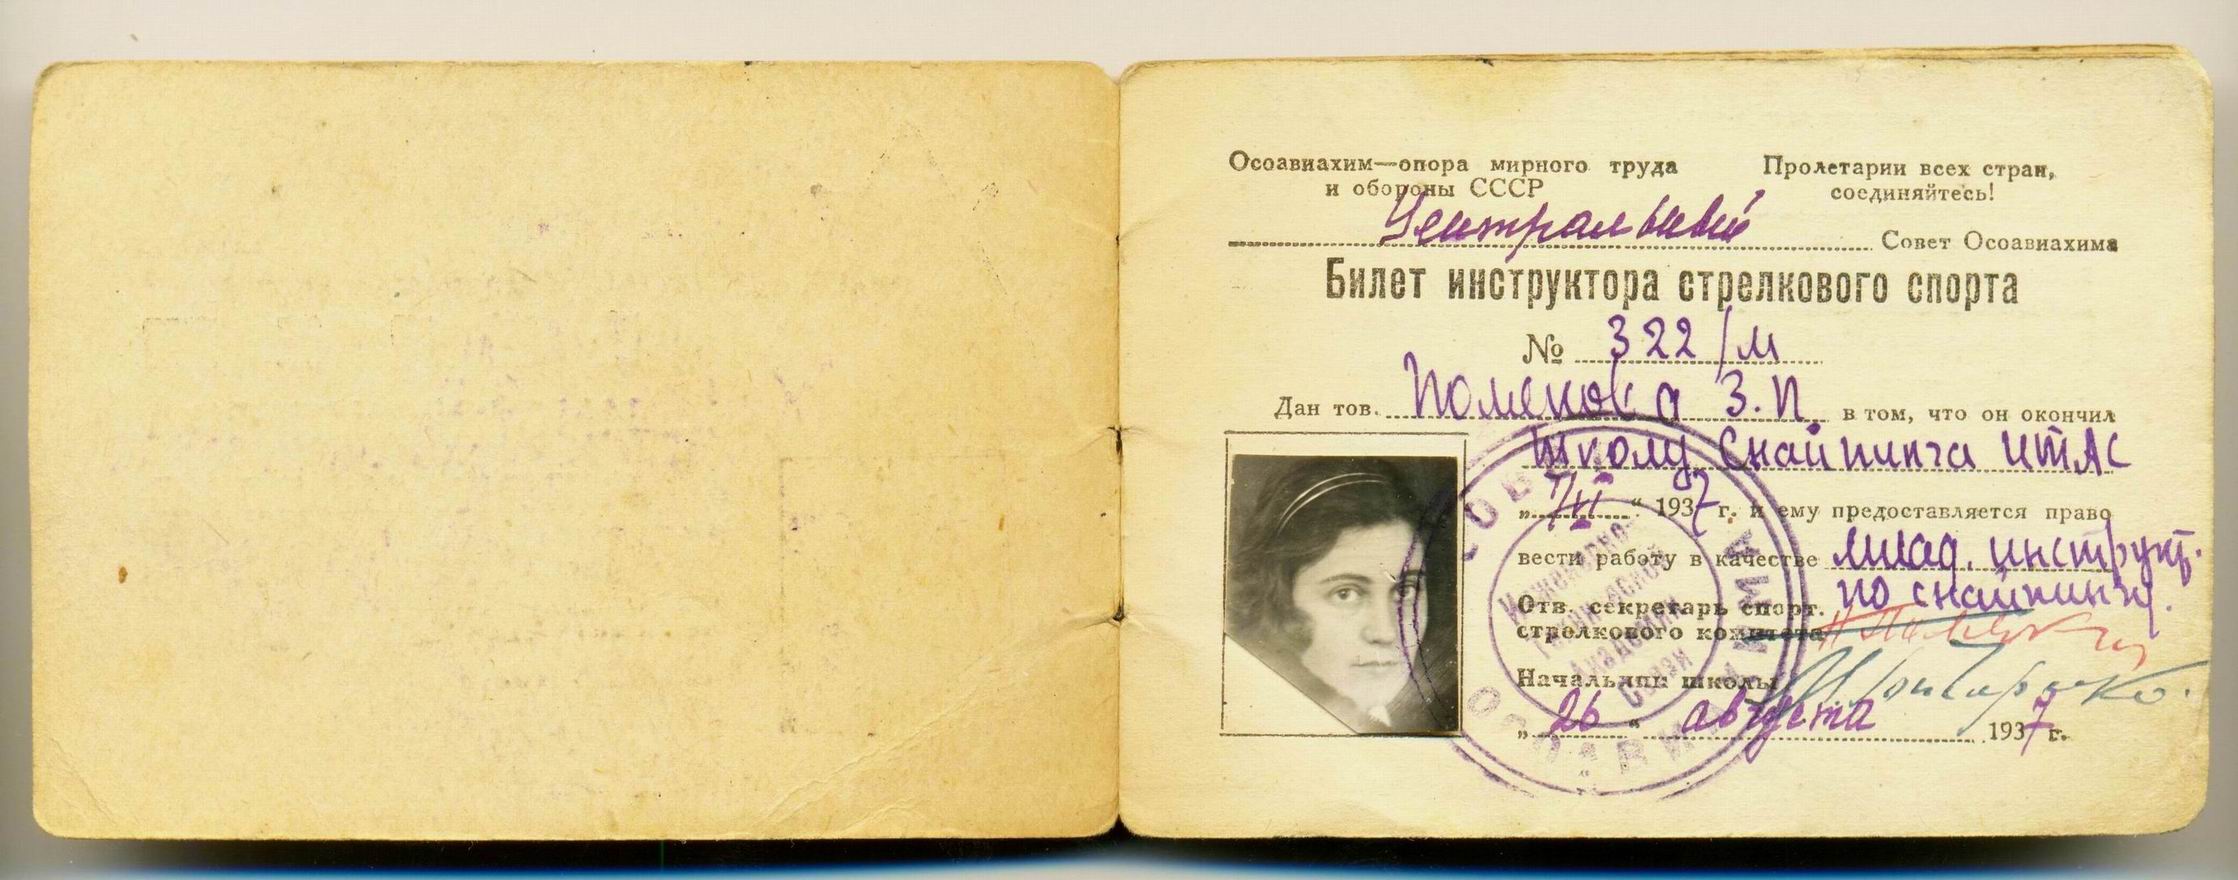 Осоавиахим—опора мирного труда
и обороны СССР
Пролетарии всех стран,
соединяйтесь!
Центральный Совет Осоавиахима
Билет инструктора стрелкового спорта
№ 322/м
Дан тов. З.П в том, что он окончил
школу Снайпинга
"7/II" 1937 г. и ему предоставляется право
вести работу в качестве млад. инструкт.
по снайпингу.
Отв. секретарь спорт.
стрелкового комитета
Начальник школы
"26" августа 1937 г.
СОВЕТ ОСОАВИАХИМА
Инженерно-
Технической
Академии
Связи